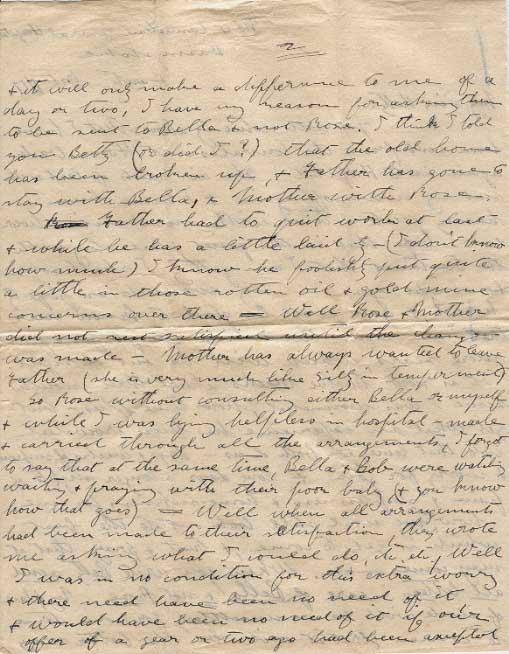 2
& it will only make a difference to me of a
day or two, I have my reason for asking them
to be sent to Bella & not Rose. I think I told
you Betty (or did I?) that the old home
has been broken up, & Father has gone to
stay with Bella, & Mother with Rose.
Father had to quit work at last
& while he has a little laid by – (I don't know
how much) I know he foolishly put quite
a little in those rotten oil & gold mine
concerns over there – Well Rose & Mother
did not rest satisfied until the change
was made – Mother has always wanted to leave
Father (she is very much like Gilly in temperment)
so Rose without consulting either Bella or myself
& while I was lying helpless in hospital – made
& carried through all the arrangements, I forgot
to say that at the same time, Bella & Bob were watching
waiting & praying with their poor baby, (& you know
how that goes) – Well when all arrangements
had been made to their satisfaction, they wrote
me asking what I would do, etc etc, Well
I was in no condition for this extra worry
& there need have been no need of it
& would have been no need of it if our
offer of a year or two ago had been accepted